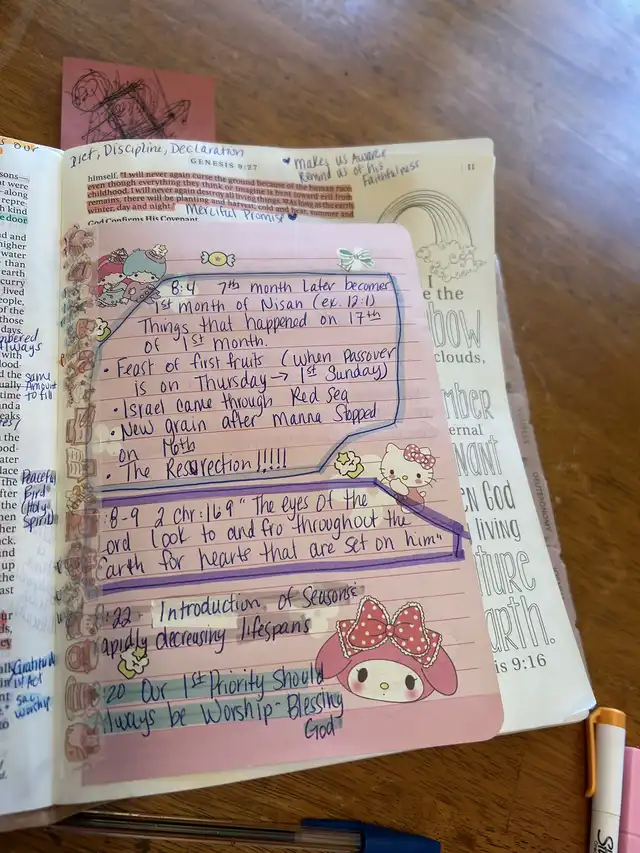 Diet, Discipline, Declaration
GENESIS 9:27
♥ makes us Aware
Remind us of His
Faithfulness
11
himself, "I will never again curse the ground because of the human race
even though everything they think or imagine is bent toward evil from
childhood. I will never again destroy all living things. As long as the earth
remains, there will be planting and harvest, cold and heat, summer and
winter, day and night."
Merciful Promise ♥
God Confirms His Covenant
8:4 7th month Later becomes
1st month of Nisan (ex. 12:1)
Things that happened on 17th
of 1st month.
• Feast of first fruits (when Passover
is on Thursday → 1st Sunday)
• Israel came through Red Sea
• New grain after Manna Stopped
on 17th
• The Resurrection!!!!!
:8-9 2 chr:16 9 "The eyes of the
ord look to and fro throughout the
Earth for hearts that are set on him"
:22 - Introduction of Seasons
apidly decreasing lifespans
:20 Our 1st Priority Should
Always be Worship - Blessing
God
I
e the
bow
clouds,
MBER
ernal
NANT
en God
living
ture
arth.
is 9:16
same
Amount
to fill
Peaceful
Bird
(Holy
Spirit)
Gratitude
1st Act
worship